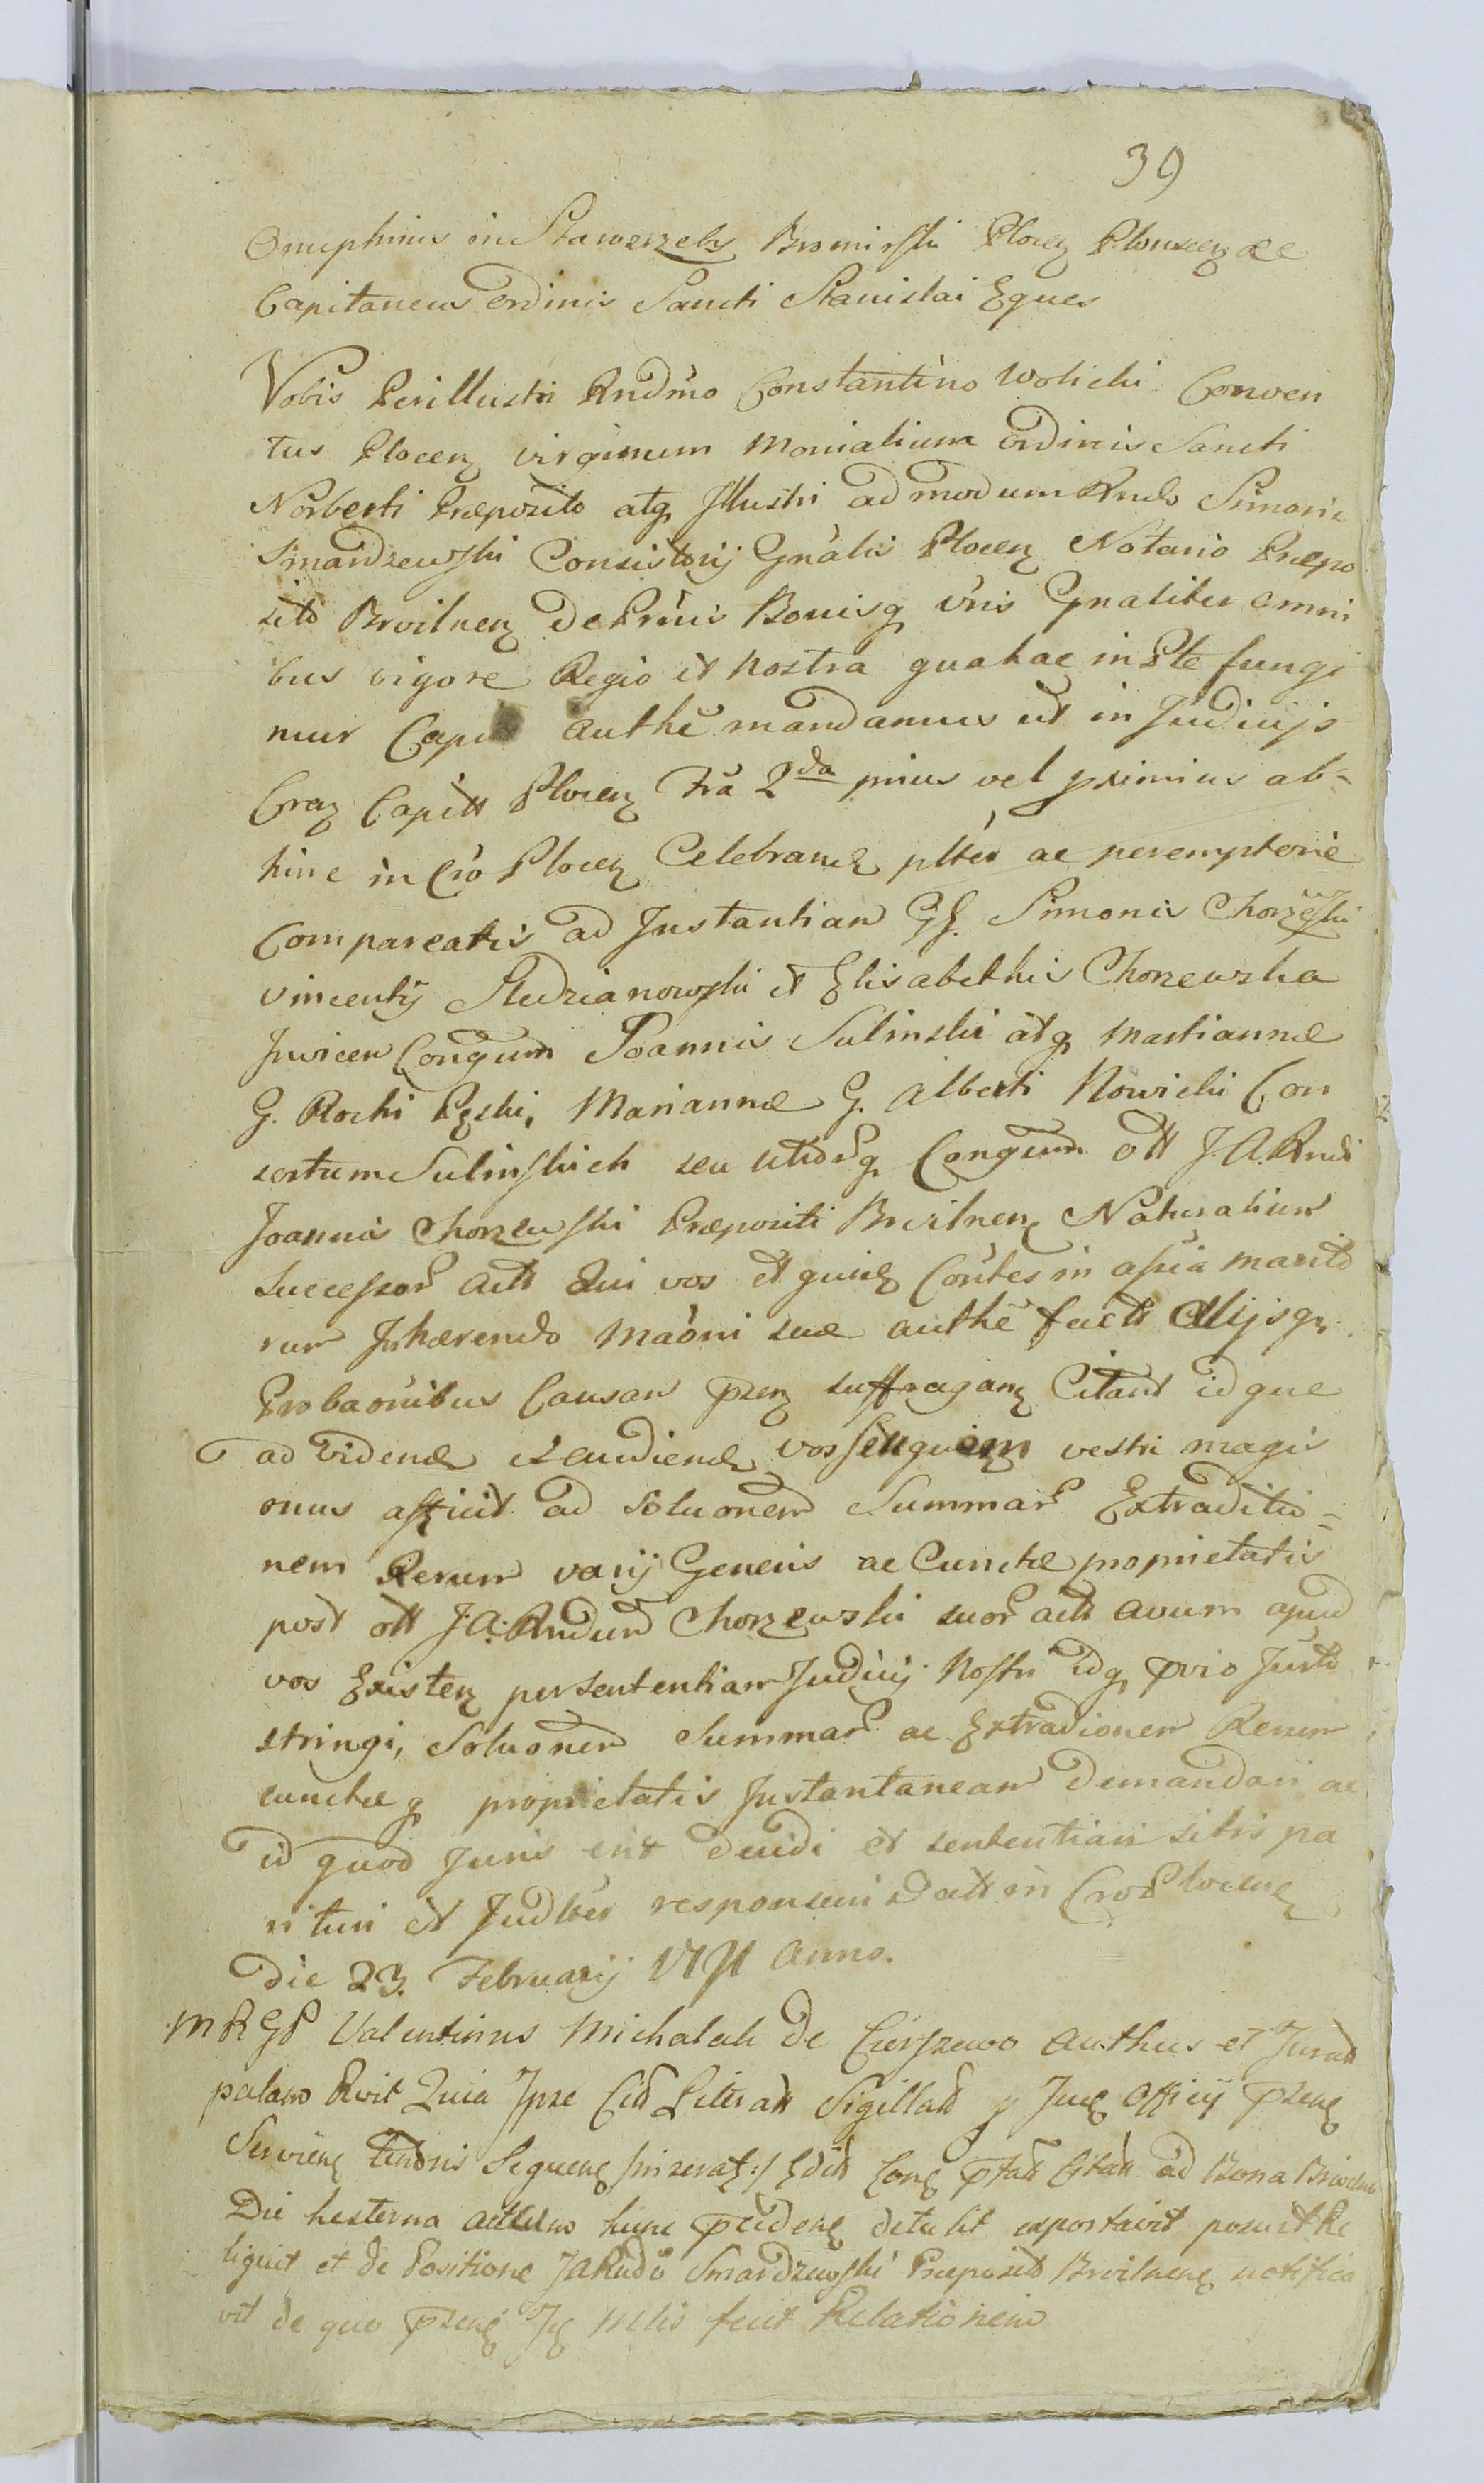 39
Onuphrius in Stawerzeb Bromirski Plocen Plonscen ac
Capitaneus Ordinis Sancti Stanislai Eques
Vobis Perillustri Rndmo Constantino Wolicki Conven
tus Plocen virginum Monialium Ordinis Sancti
Norberti Præposito atq Illustri admodum Rndo Simoni
Smardzewski Consistorij Gnalis Plocen Notario Præpo
sito Brvilnen De Prnis Bonisq vris Gnaliter omni
bus vigore Regio et Nostra qua hac in Pte fungi
mur Capit authe mandamus ut in Judicijs
Craz Capitt Plocen Fra 2da prius vel proximius ab=
hinc in Cro Plocen Celebrand pltr ac peremptorie
Compareatis ad Instantian GG. Simonis Chorzewski
Vincentij Sledzianowski et Elisabethis Chorzewska
Invicem Congum Joannis Sulinski atq Martiannæ
G. Rochi Peski, Mariannæ G. Alberti Nowicki Con
sortum Sulinskich seu utiorq Congum ott J. A. Rndi
Joannis Chorzewski Præpositi Brvilnen Naturalium
Successor actt Qui vos et quiuis Contes in assia marito
rur Inhærendo Maoni suæ authe factt Alijsq
Probaonibus Causam przen suffragan Citant idque
ad Videnđ et audienđ vos seu quem vestri magis
onus afficit ad Soluonem Summar Extraditio=
nem Rerum varij Generis ac Cunctæ proprietatis
post ott J: A: Rndum Chorzewski suor actt avum apud
vos Existen per Sententiam Judicij Nostri idq prvio Jurto
stringi, Soluonem Summar ac Extradionem Rerum
cunctæq proprietatis Instantanean Demandari ac
id quod Juris erit Decidi et sententiam sitis pa
rituri et Judlter responsuri Datt in Cro Plocen
Die 23. Februarij 1791 Anno.
MRGP Valentinus Michalak De Cierszewo Authus et Jurat
palam Rvit Quia Ipse Litt Literatt Sigillatt p Inc Officij przen
Servien tenoris Sequen /inserat:/ Edit Con ptatt Citatt ad Bona Brvilno
Die hesterna actum hunc præden detulit exportavit posuit Re
liquit et de Positione JARndo Smardzewski Præposito Brvilnen notifica
vit de quo przen Is Mlis fecit Relationem